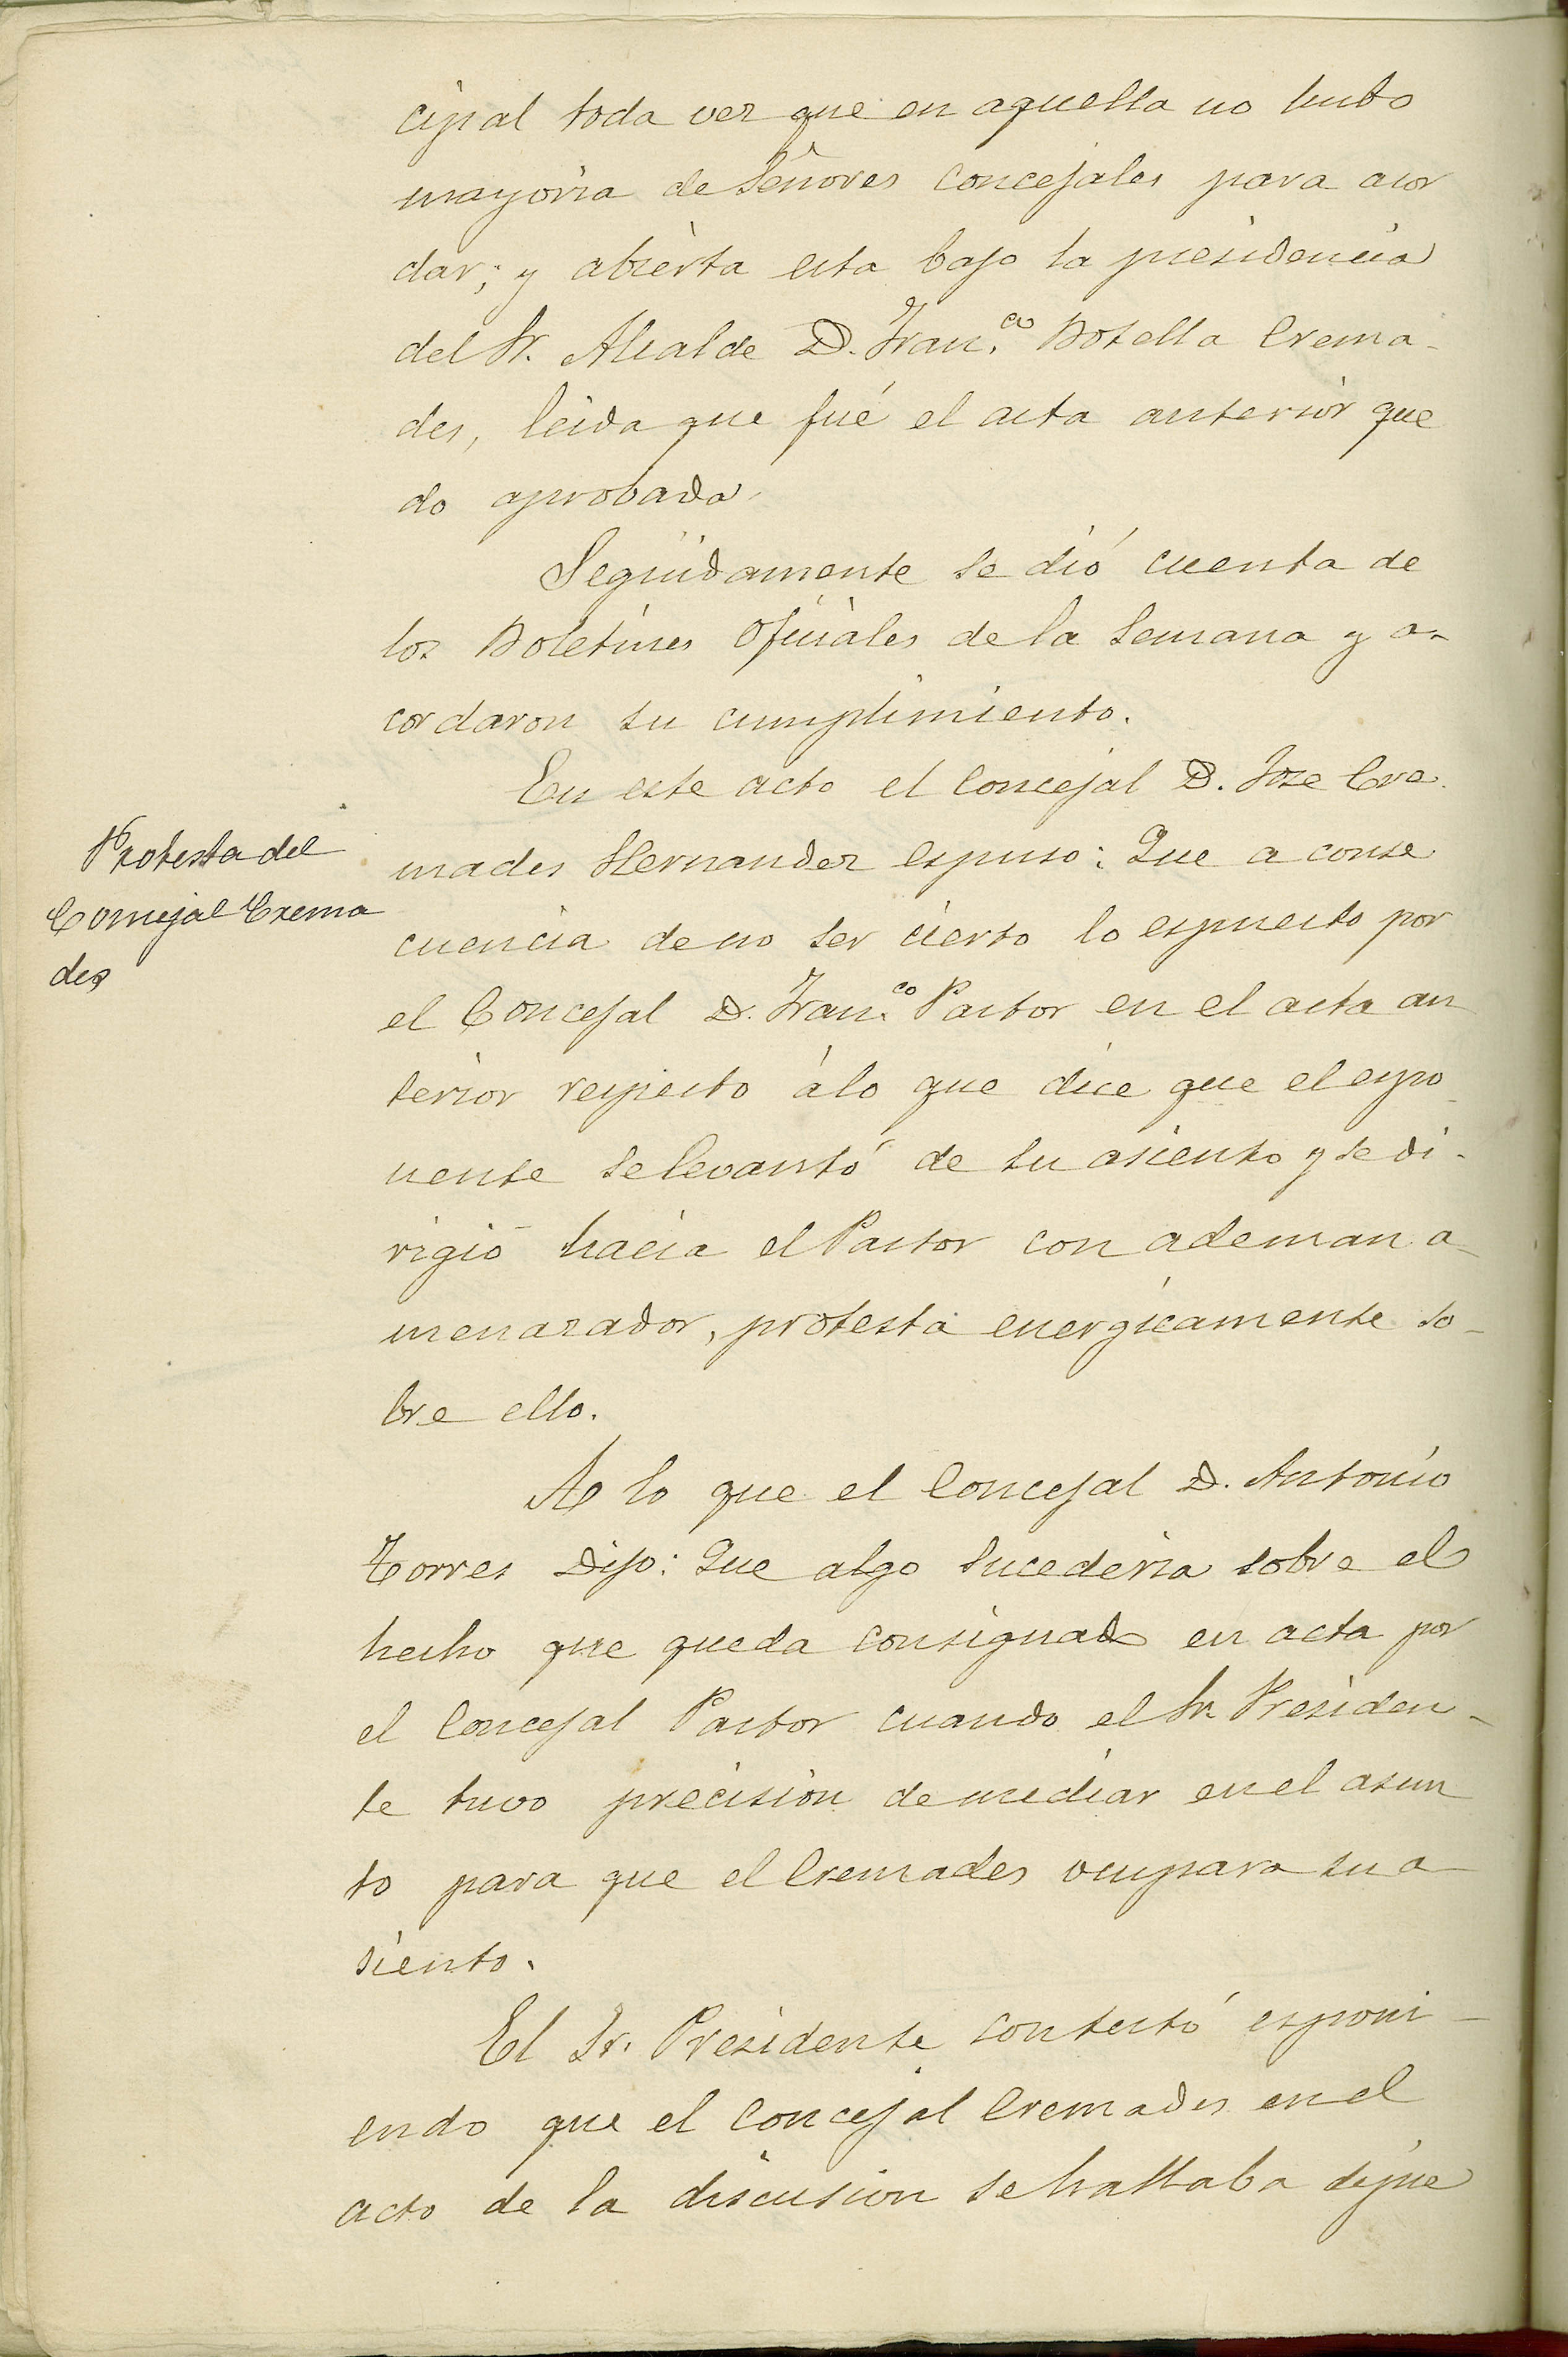 cipal toda vez que en aquella no hubo
mayoria de Señores Concejales para acor
dar; y abierta esta bajo la presidencia
del Sr. Alcalde D. Fran.co Botella Crema-
des, leida que fué el acta anterior que
do aprobada.
Seguidamente se dió cuenta de
los Boletines Oficiales de la Semana y a-
cordaron su cumplimiento.
En este acto el Concejal D. Jose Cre
Protesta del
Concejal Crema
des
mades Hernandez espuso: Que a conse
cuencia de no ser cierto lo espuesto por
el Concejal D. Fran.co Pastor en el acta an
terior respecto á lo que dice que el espo
nente se levantó de su asiento y se di-
rigió hacia el Pastor con ademan a-
menazador, protesta energicamente so-
bre ello.
A lo que el Concejal D. Antonio
Torres Dijo: Que algo sucederia sobre el
hecho que queda consignado en acta por
el Concejal Pastor cuando el Sr Presiden-
te tuvo precision de mediar en el asun
to para que el Cremades ocupara su a
siento.
El Sr. Presidente contestó esponi-
endo que el Concejal Cremades en el
acto de la discusion se hallaba de pie